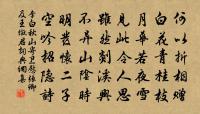 何以折相贈
白花青桂枝
月華若夜雪
見此令人思
雖然剡溪興
不異山陰時
明發懷二子
空吟招隱詩
李白秋山寄衛尉張卿
及王徵君